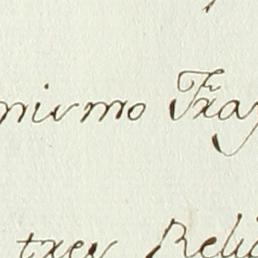 mismo Fray
tres Reli